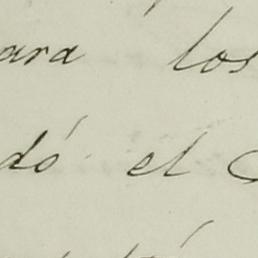 ara los
dó el